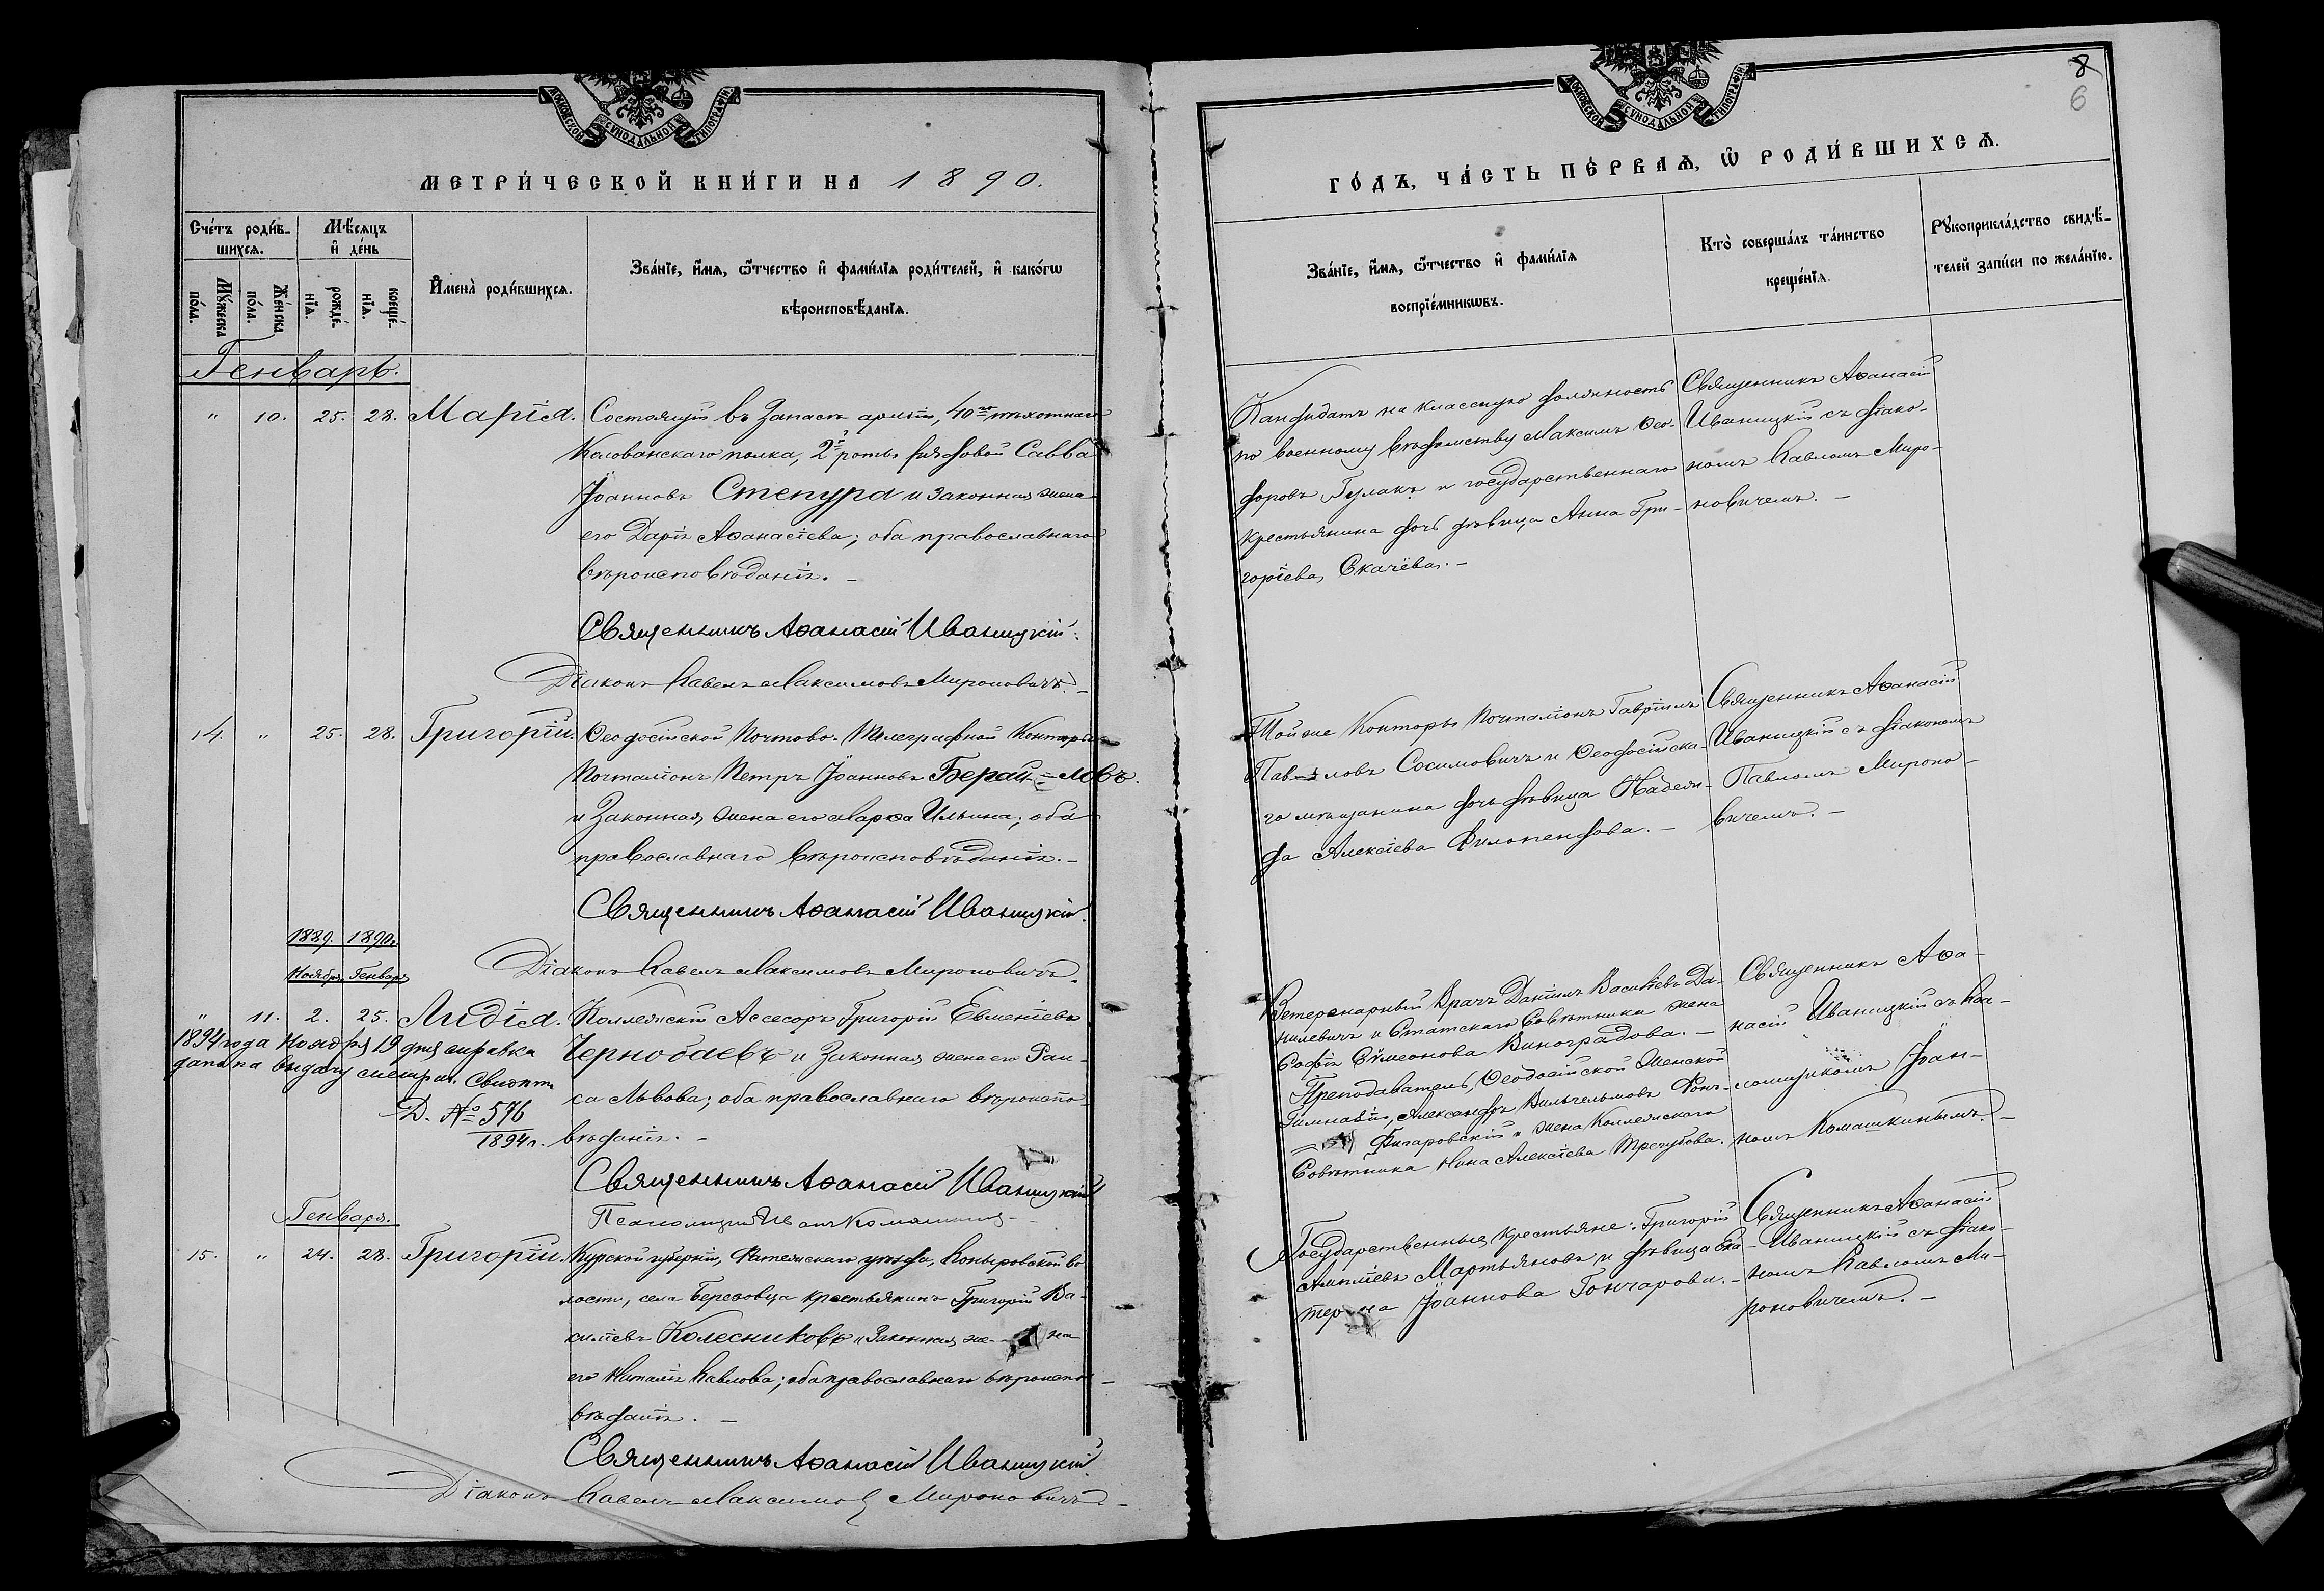 МОСКОВСКОЙ СѴНОДАЛЬНОЙ ТИПОГРАФІИ
МЕТРИ́ЧЕСКОЙ КНИ́ГИ НА 1890.
Сче́тъ роди́в-
шихсѧ.
Мѣ́сяцъ
и҆ де́нь
И҆мена̀ роди́вшихсѧ.
Зва́нїе, и҆́мѧ, ѻ҆́тчество и҆ фами́лїѧ роди́телей, и҆ како́гѡ
вѣроисповѣ́данїѧ.
Мꙋ́жеска
по́ла.
Же́нска
по́ла.
рожде́-
нїѧ.
креще́-
нїѧ.
Генварь.
" 10. 25. 28. Марія. Состоящій въ Запасѣ арміи, 40го пѣхотнаго
Колованскаго полка, 2й роты рядовой Савва
Іоанновъ Степура и законная жена
его Дарія Аѳанасіева; оба православнаго
вѣроисповѣданія. –
Священникъ Аѳанасій Иваницкій.
Діаконъ Павелъ Максимовъ Мироновичъ. –
14. " 25. 28. Григорій. Ѳеодосійской Почтово-Телеграфной Конторы
Почталіонъ Петръ Іоанновъ Берай=ловъ.
и Законная жена его Марѳа Ильина; оба
православнаго вѣроисповѣданія. –
Священникъ Аѳанасій Иваницкій.
1889. 1890.
Ноябрь Генварь
Діаконъ Павелъ Максимовъ Мироновичъ.
" 11. 2. 25. Лидія. Коллежскій Ассесоръ Григорій Евменіевъ
1894 года Ноября 19 дня справка
Чернобаевъ и Законная жена его Раи-
дана на выдачу метрич. Свидѣт.
са Львова; оба православнаго вѣроиспо-
Д. № 576
1894 г.
вѣданія. –
Священникъ Аѳанасій Иваницкій
Псаломщикъ
Генварь.
15. " 24. 28. Григорій. Курской губерніи, Фатежскаго уѣзда, Поныровской во-
лости, села Березовца крестьянинъ Григорій Ва-
силіевъ Колесниковъ и Законная же- на
его Наталія Павлова; оба православнаго вѣроиспо-
вѣданія. –
Священникъ Аѳанасій Иваницкій.
Діаконъ Павелъ Максимовъ Мироновичъ. –
8
6
МОСКОВСКОЙ СѴНОДАЛЬНОЙ ТИПОГРАФІИ
ГО́ДЪ, ЧА́СТЬ ПЕ́РВАѦ, Ѡ҆ РОДИ́ВШИХСѦ.
Зва́нїе, и҆́мѧ, ѻ҆́тчество и҆ фами́лїѧ
воспрїе́мникѡвъ.
Кто̀ соверша́лъ та́инство
креще́нїѧ.
Рꙋкоприкла́дство свидѣ́-
телей за́писи по жела́нїю.
Кандидатъ на классную должность
по военному вѣдомству Максимъ Ѳео-
доровъ Гулакъ и государственнаго
крестьянина дочь дѣвица Анна Гри-
горіева Скачёва. –
Священникъ Аѳанасій
Иваницкій съ діако-
номъ Павломъ Миро-
новичемъ. –
Той же Конторы Почталіонъ Гавріилъ
Павловъ Сосимовичъ и Ѳеодосійска-
го мѣщанина дочь дѣвица Надеж-
да Алексіева Филопендова. –
Священникъ Аѳанасій
Иваницкій съ діакономъ
Павломъ Мироно-
вичемъ. –
Ветеренарный Врачъ Даніилъ Василіевъ Да-
нилевичъ и Статскаго Совѣтника жена
Софія Сѵмеонова Виноградова. –
Преподаватель Ѳеодосійской Женской
Гимназіи, Александръ Вильгельмовъ Фонъ-
Фигаровскій и жена Коллежскаго
Совѣтника Нина Алексіева Трегубова.
Священникъ Аѳа-
насій Иваницкій съ Пса-
ломщикомъ Іоан-
номъ Комашкинымъ. –
Государственные крестьяне: Григорій
Мартьяновъ и дѣвица Ека-
терина Іоаннова Гончарова. –
Священникъ Аѳанасій
Иваницкій съ діако-
номъ Павломъ Ми-
роновичемъ. –